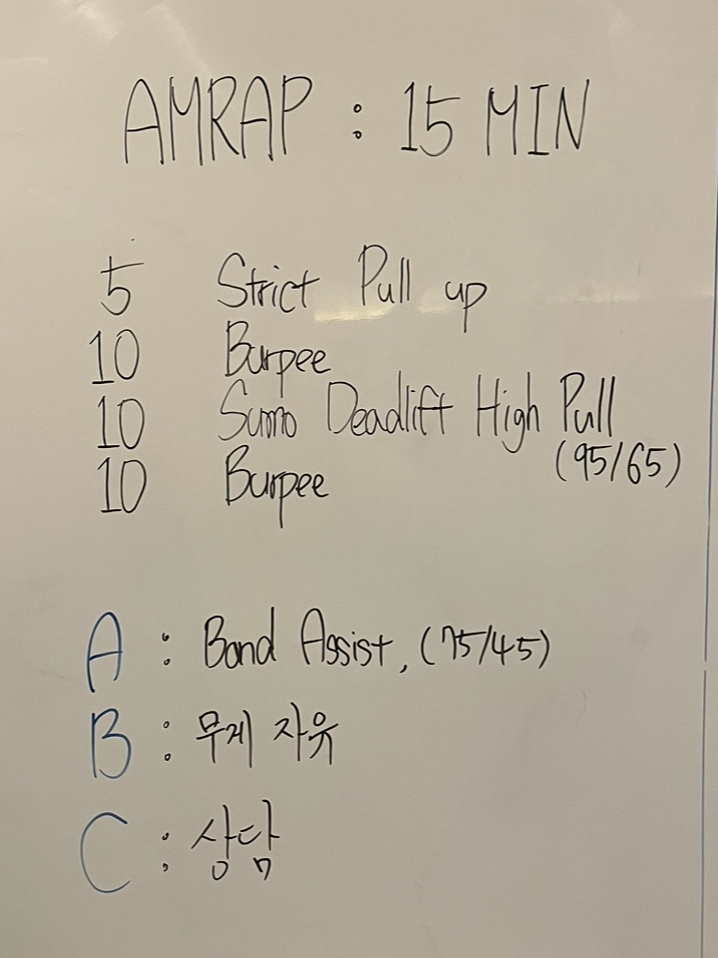 AMRAP : 15 MIN
5 Strict Pull up
10 Burpee
10 Sumo Deadlift High Pull
(95/65)
10 Burpee
A : Band Assist, (75/45)
B : 무게 자유
C : 상담